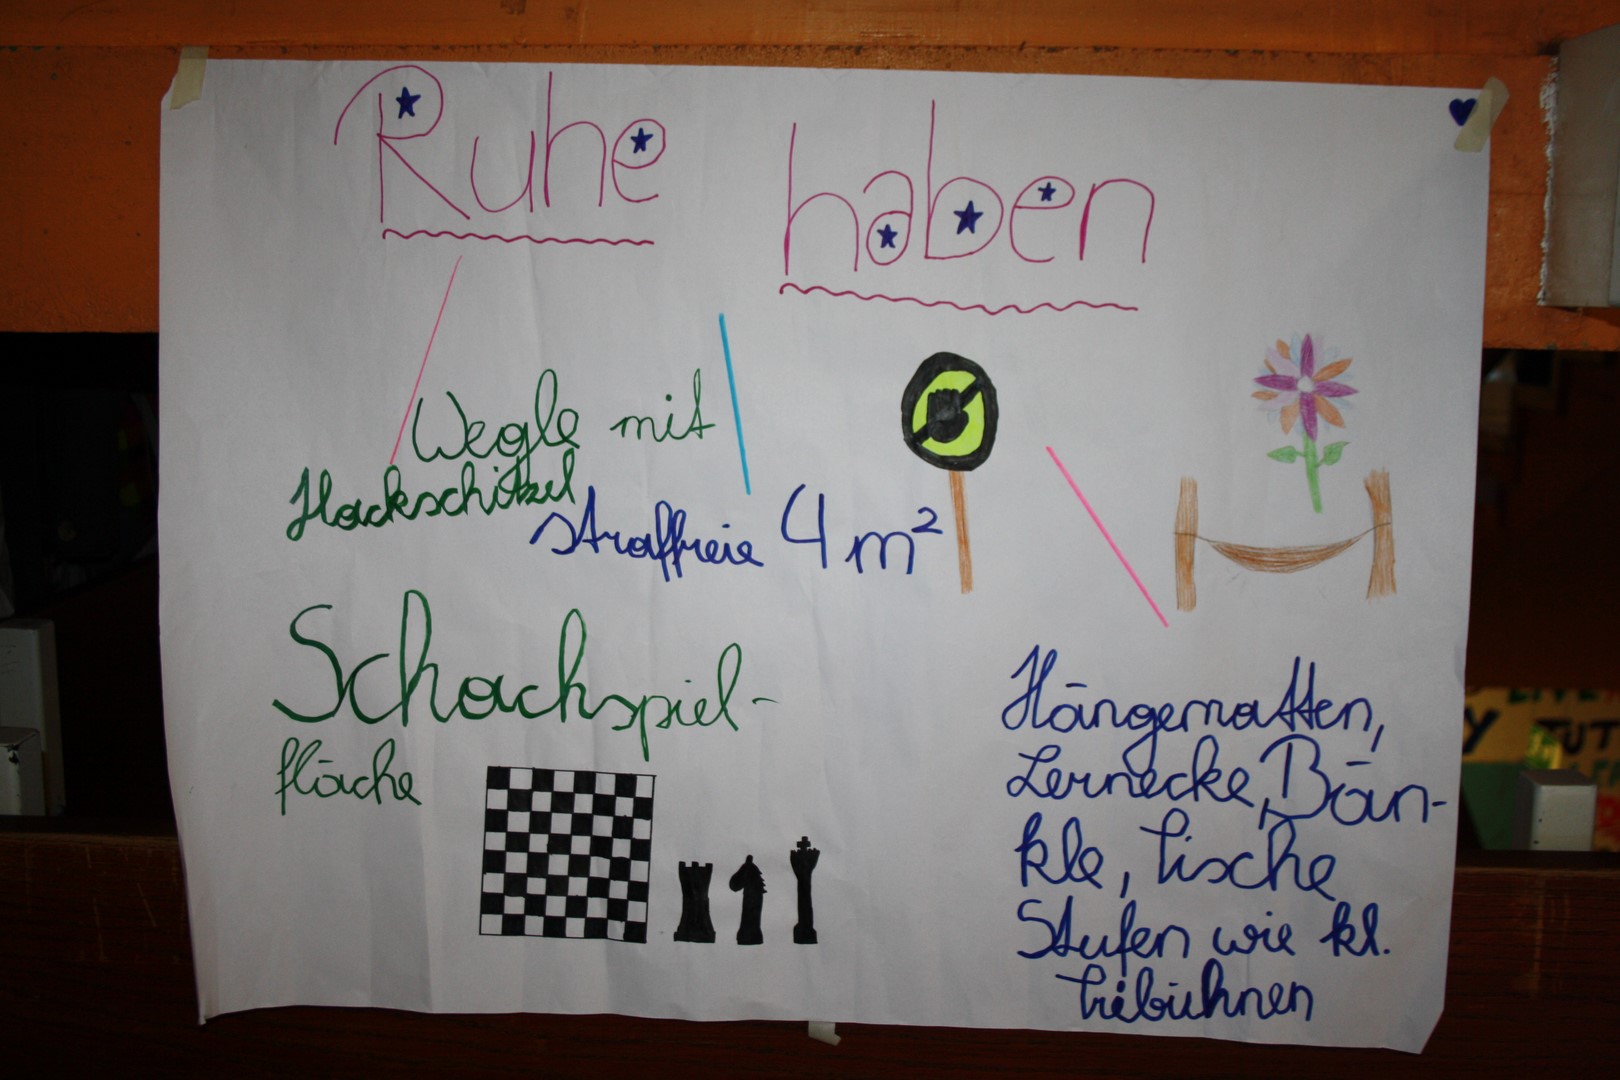 Ruhe haben
Wegle mit
Hackschitzel
straffreie 4m²
Schachspiel-
fläche
Hängematten,
Lernecke, Bän-
kle, Tische
Stufen wie kl.
Tribühnen
LIVE
TUT